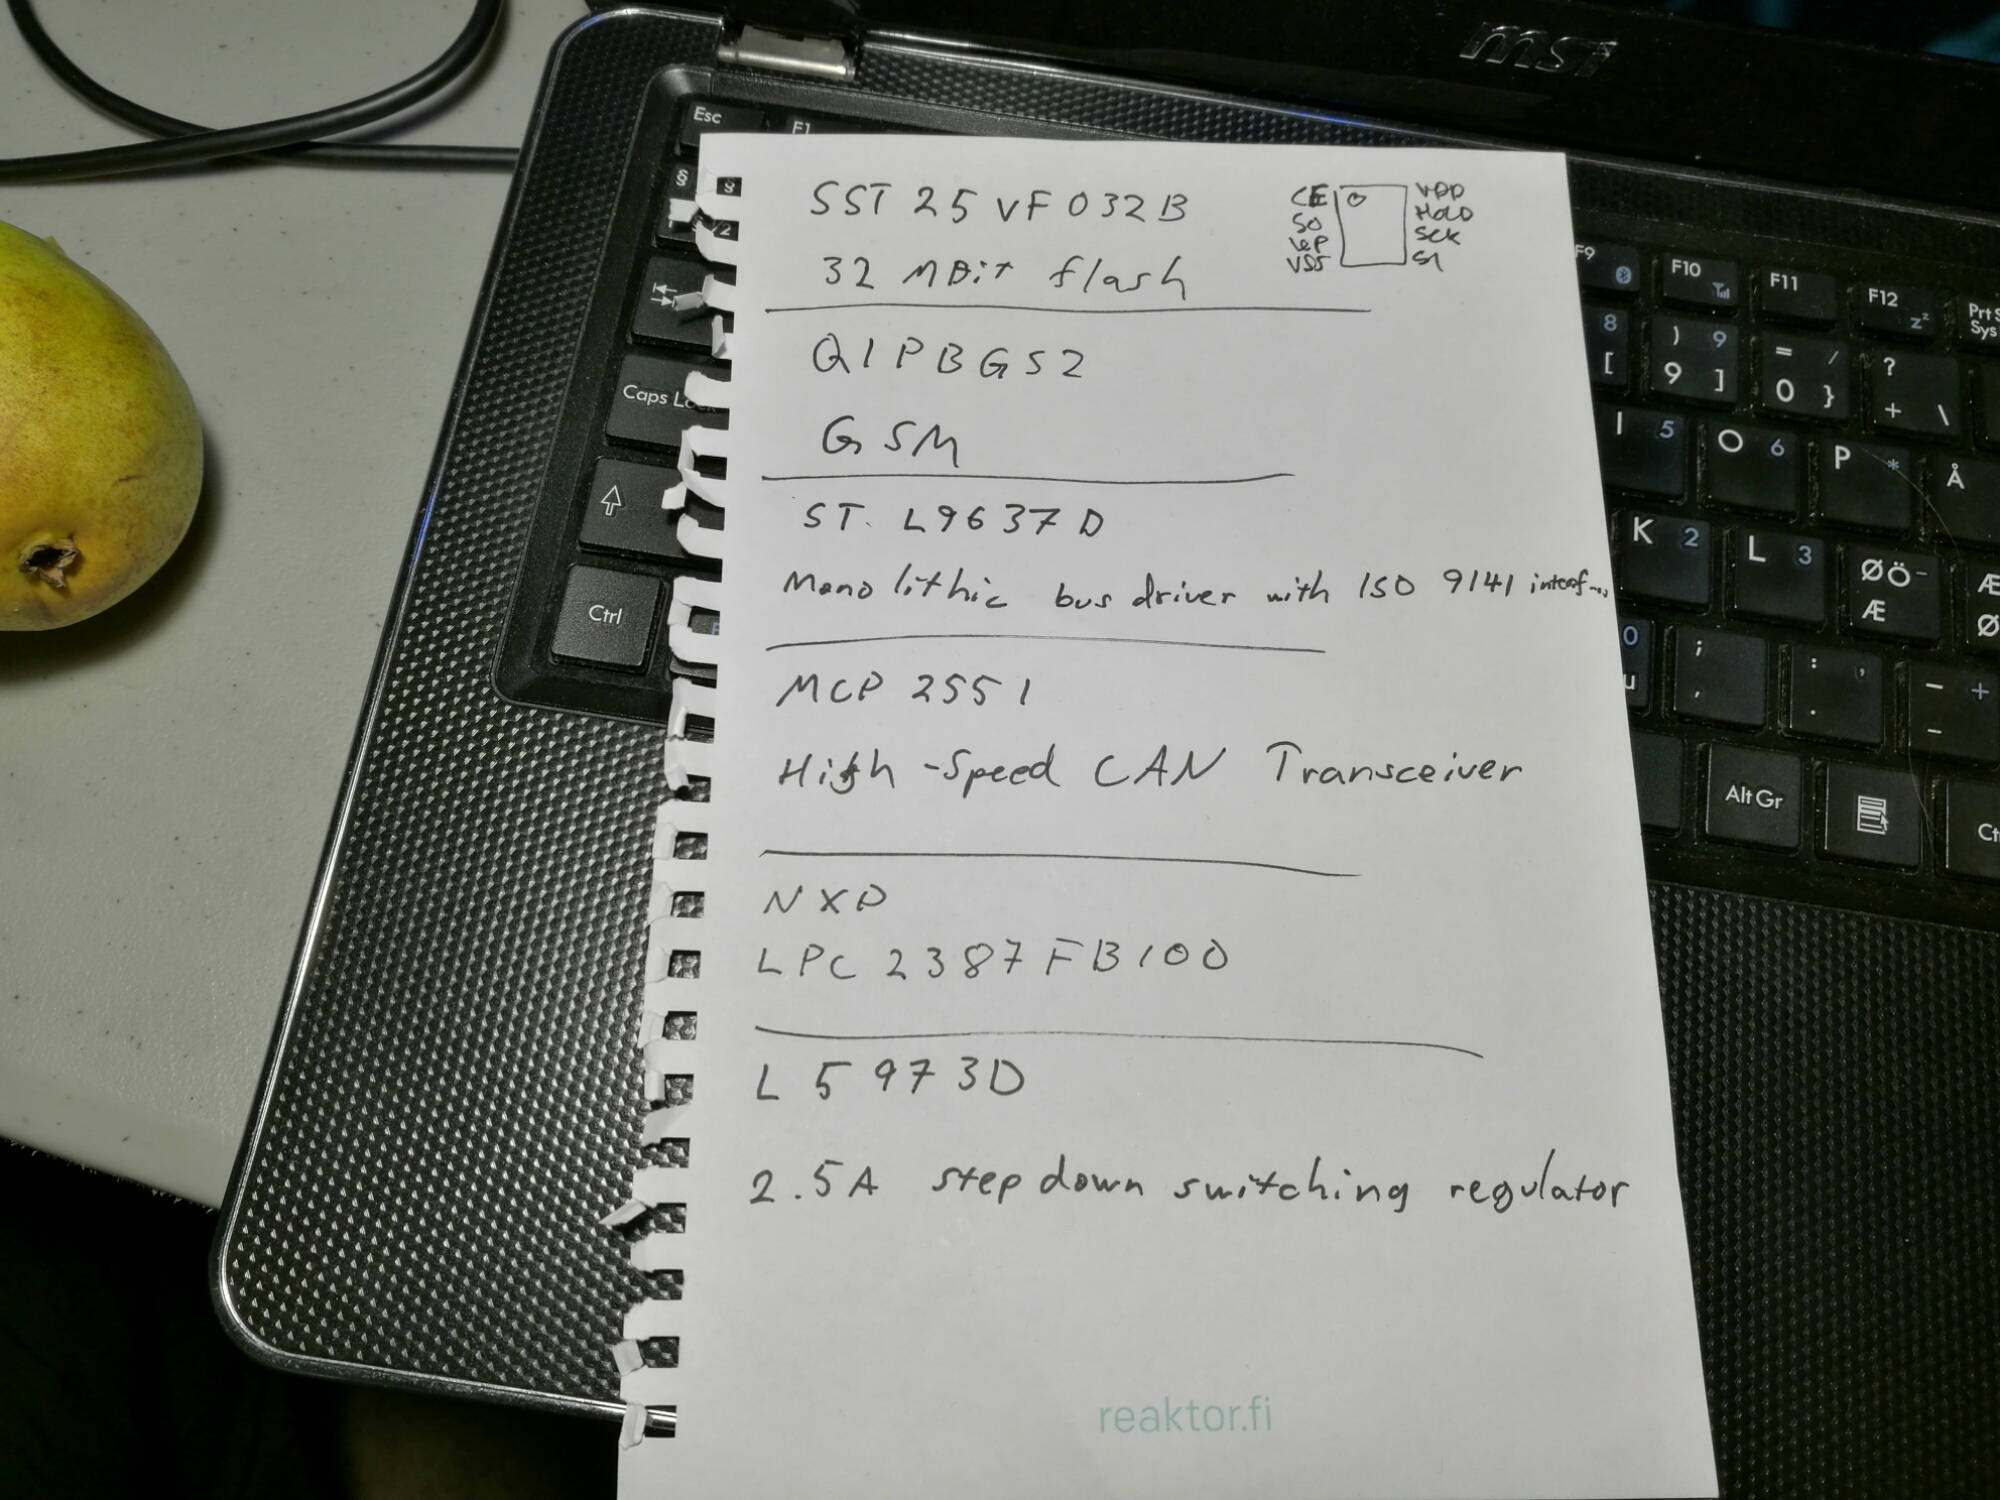 msi
Esc
F1
§
§
1/2
Caps Lock
Ctrl
SST 25 VF 032B
32 MBit flash
CE
SO
WP
VSS
VDD
HOLD
SCK
SI
Q1PBGS2
GSM
ST. L9637D
Monolithic bus driver with ISO 9141
MCP 2551
High-Speed CAN Transceiver
NXP
LPC 2387FB100
L5973D
2.5A step down switching regulator
reaktor.fi
F9
F10
F11
F12
zz
Prt S
Sys
8
[
) 9
9 ]
= /
0 }
?
+ \
I 5
O 6
P *
Å
K 2
L 3
ØÖ
Æ
Æ
Ø
0
µ
;
,
: ’
.
- +
-
Alt Gr
Ct